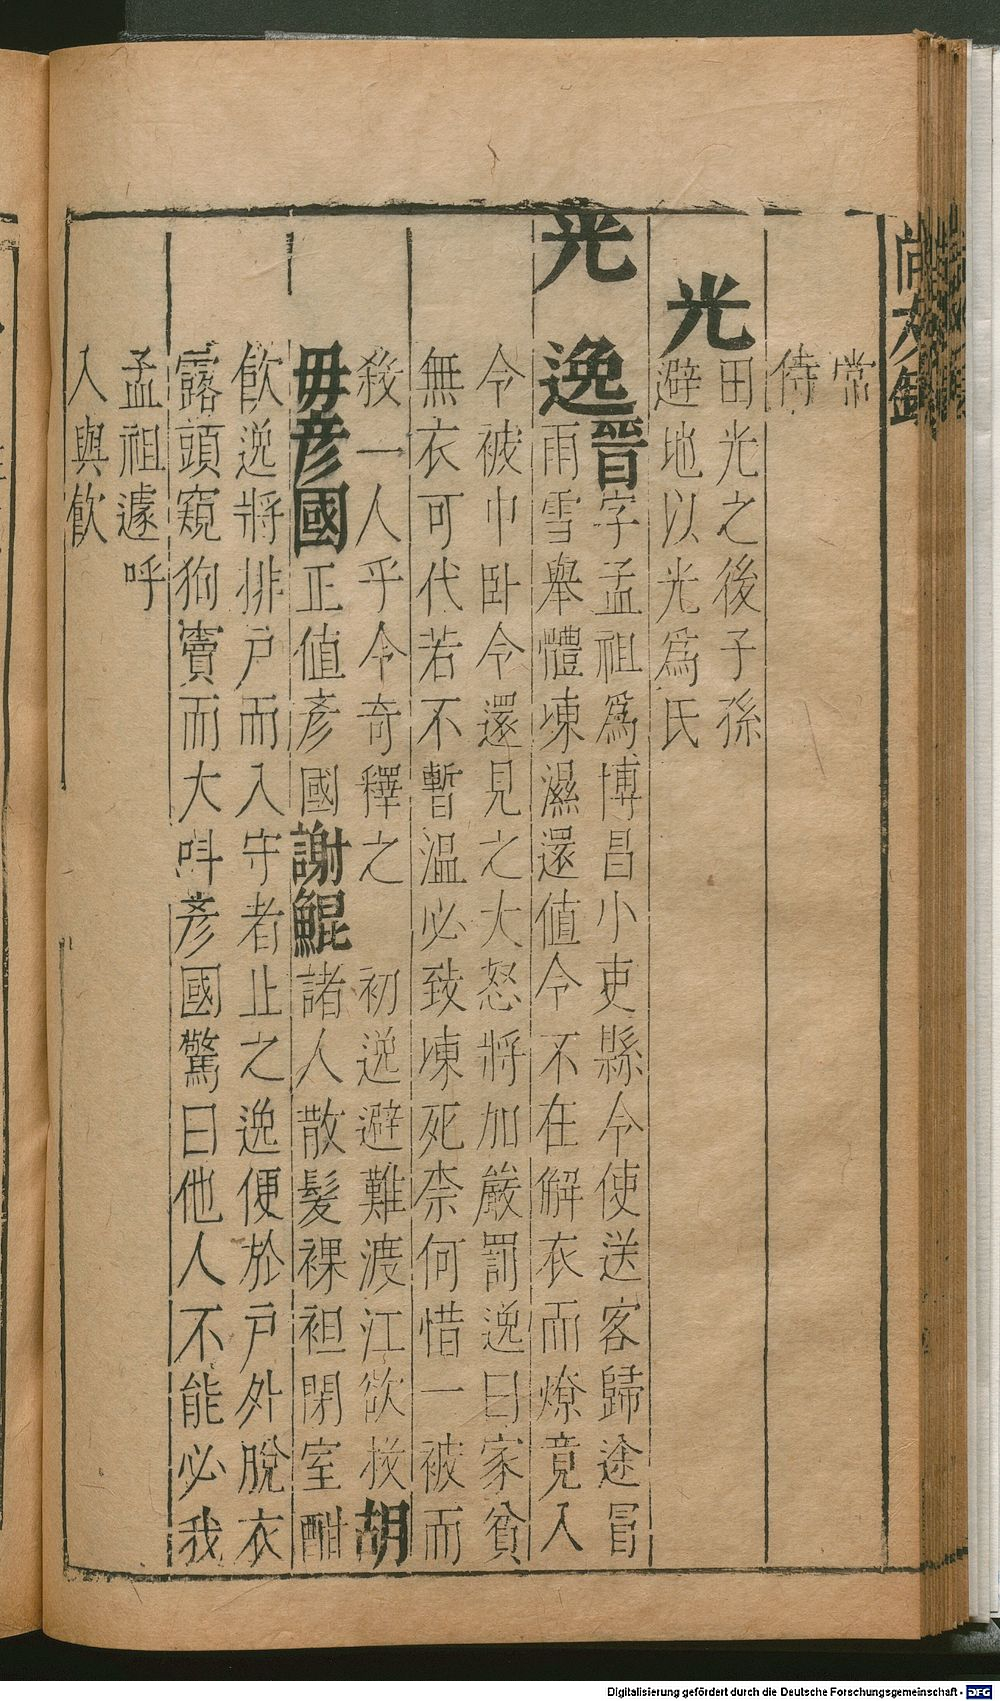 尚友錄
常
侍
光
田光之後子孫
避地以光爲氏
光逸
晉字孟祖爲博昌小吏縣令使送客歸途冒
雨雪舉體凍濕還值令不在解衣而燎竟入
令被巾卧令還見之大怒將加嚴罰逸曰家貧
無衣可代若不暫溫必致凍死柰何惜一被而
殺一人乎令奇釋之 初逸避難渡江欲投胡
毋彥國正值彥國謝鯤諸人散髮裸袒閉室酣
飲逸將排戶而入守者止之逸便於戶外脫衣
露頭窺狗竇而大呌彥國驚曰他人不能必我
孟祖遽呼
入與飲
Digitalisierung gefördert durch die Deutsche Forschungsgemeinschaft - DFG